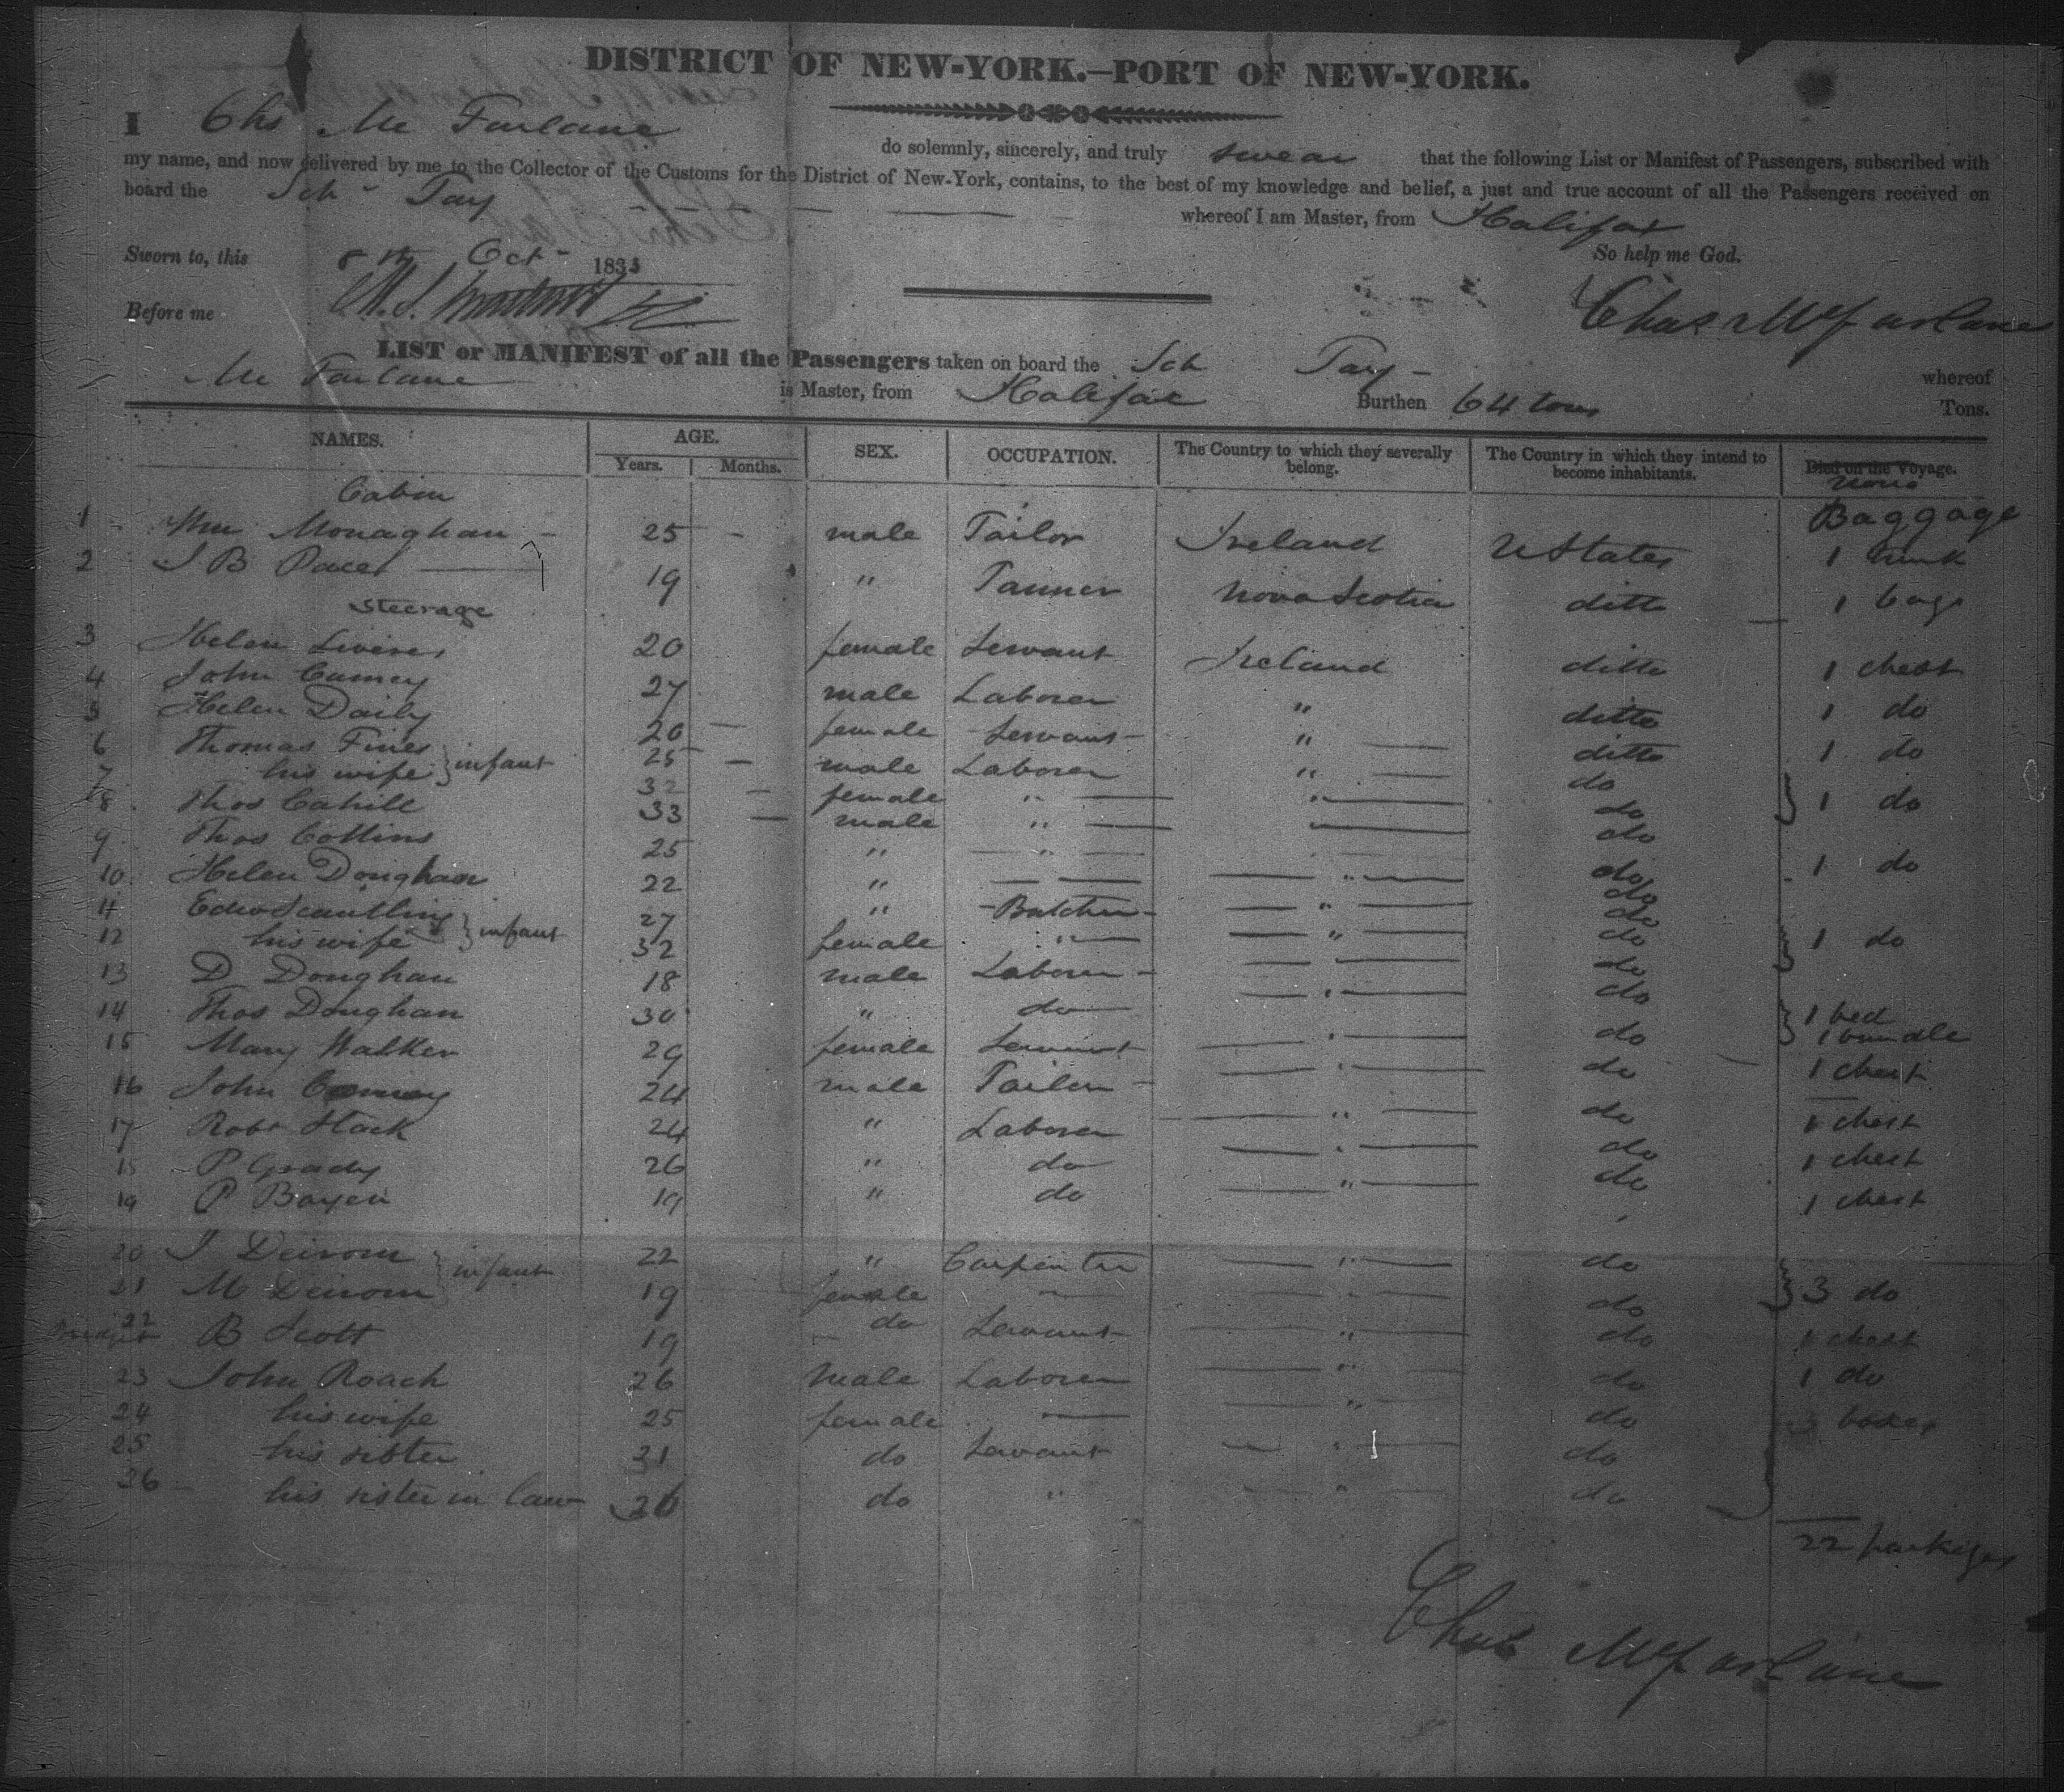 DISTRICT OF NEW-YORK.—PORT OF NEW-YORK.
I Chs Mc Farlane do solemnly, sincerely, and truly swear that the following List or Manifest of Passengers, subscribed with
my name, and now delivered by me to the Collector of the Customs for the District of New-York, contains, to the best of my knowledge and belief, a just and true account of all the Passengers received on
board the Sch Tay whereof I am Master, from Halifax
So help me God.
Sworn to, this 8th Oct 1835
Before me
Chas McFarlane
LIST or MANIFEST of all the Passengers taken on board the Sch Tay whereof
Mc Farlane is Master, from Halifax Burthen 64 tons Tons.
NAMES. AGE. Years. Months. SEX. OCCUPATION. The Country to which they severally belong. The Country in which they intend to become inhabitants. Died on the Voyage. none
Cabin Baggage
1 Wm Monaghan 25 male Tailor Ireland U States 1 trunk
2 J B 19 " Tanner Nova Scotia ditto 1 bags
Steerage
3 Helen 20 female Servant Ireland ditto 1 chest
4 John 27 male Laborer " ditto 1 do
5 Helen Daily 20 female Servant " ditto 1 do
6 Thomas Fines } infant 25 male Laborer " do
7 his wife 32 female " " do } 1 do
8 Thos Cahill 33 male " do
9 Thos Collins 25 " " do 1 do
10 Helen Donghan 22 " " do
11 Edw Scantling } infant 27 " Butcher " do
12 his wife 32 female " " do } 1 do
13 D Donghan 18 male Laborer " do
14 Thos Donghan 30 " do " do } 1 bed 1 bundle
15 Mary Walker 29 female Servant " do 1 chest
16 John 24 male Tailor " do 1 chest
17 Robt Stack 24 " Laborer " do 1 chest
18 P Grady 26 " do " do 1 chest
19 P Boyen 19 " do " do
20 J Deirom } infant 22 " Carpenter " do
21 M Deirom 19 female do } 3 do
22 Bridget B Scott 19 do Servant " do 1 chest
23 John Roach 26 male Laborer " do 1 do
24 his wife 25 female " do 3 boxes
25 his sister 21 do Servant " do
26 his sister in law 26 do " " do
22 packages
Chas McFarlane